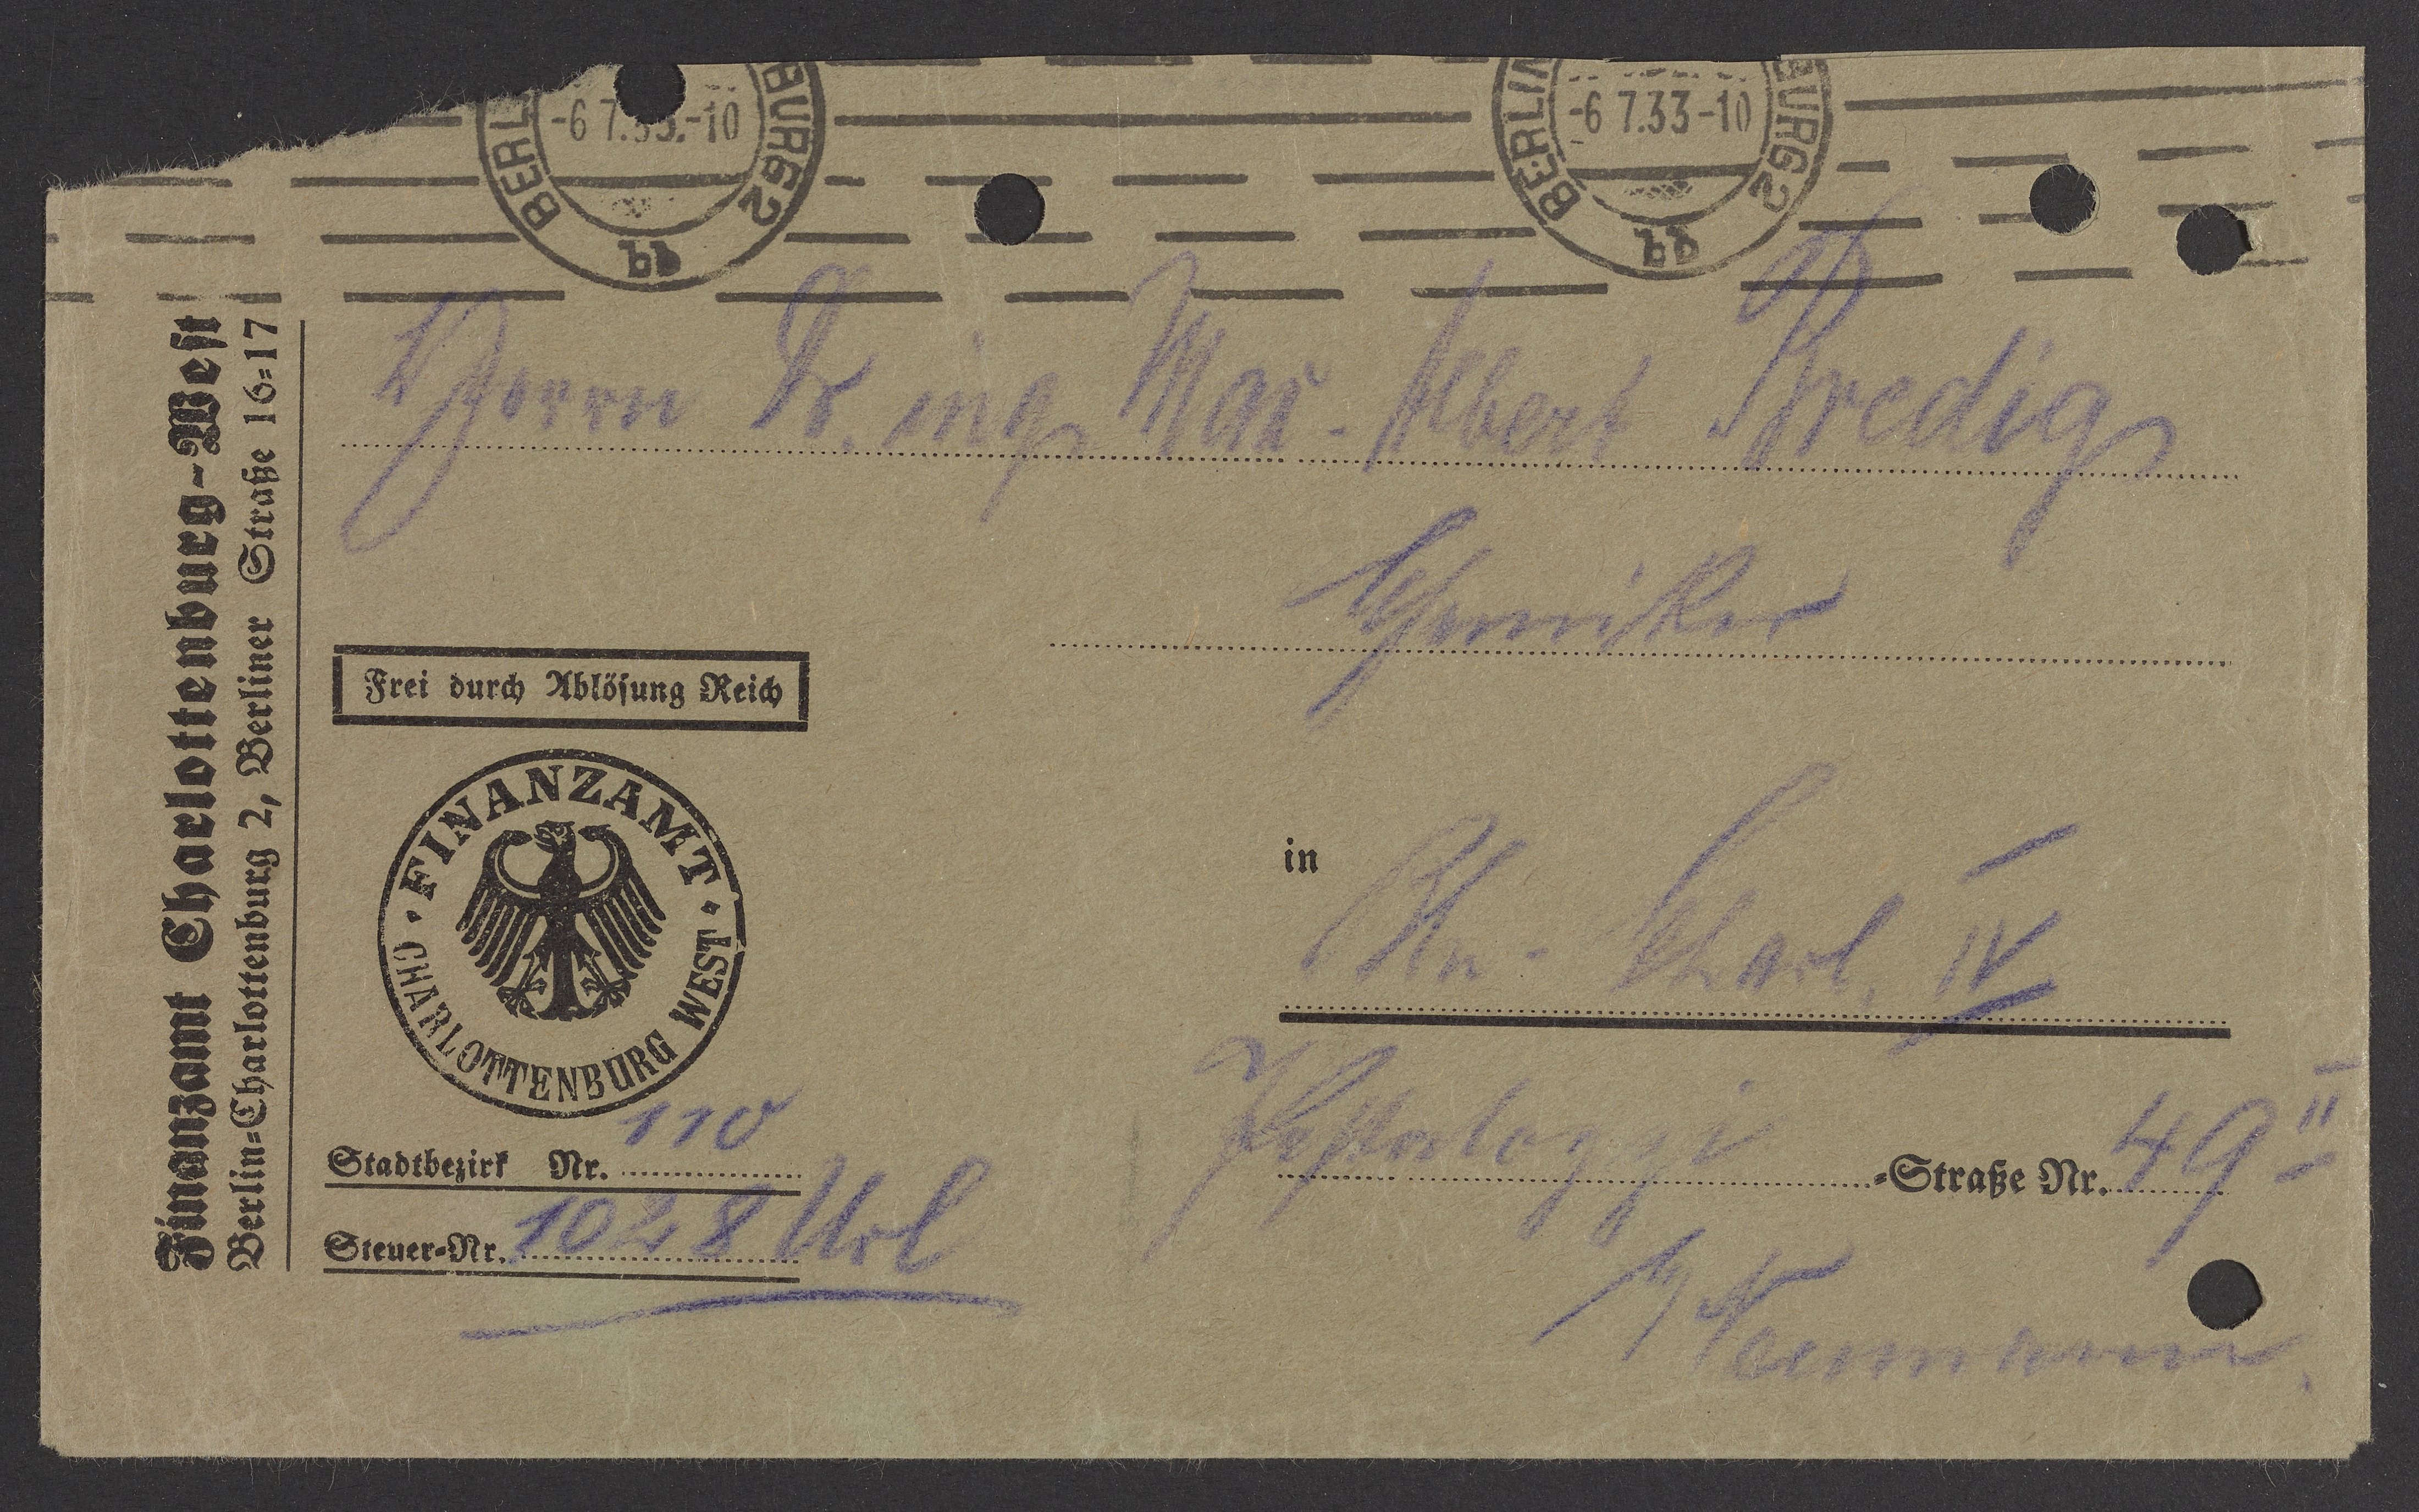 BERL BURG2
-6 7.33.-10
bb
BERLIN BURG2
-6 7.33-10
bb
Finanzamt Charlottenburg-West
Berlin-Charlottenburg 2, Berliner Straße 16-17
Herrn Dr. ing. Max-Albert Bredig
Chemiker
Frei durch Ablösung Reich
FINANZAMT
CHARLOTTENBURG WEST
in Bln-Charl. IV
Pestalozzi -Straße Nr. 49 II
b/ Naumann.
Stadtbezirk Nr. 110
Steuer-Nr. 1028